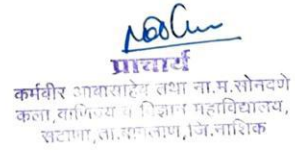 प्राचार्य
कर्मवीर आबासाहेब तथा ना.म.सोनवणे
कला, वाणिज्य व विज्ञान महाविद्यालय,
सटाणा, ता.बागलाण, जि.नाशिक